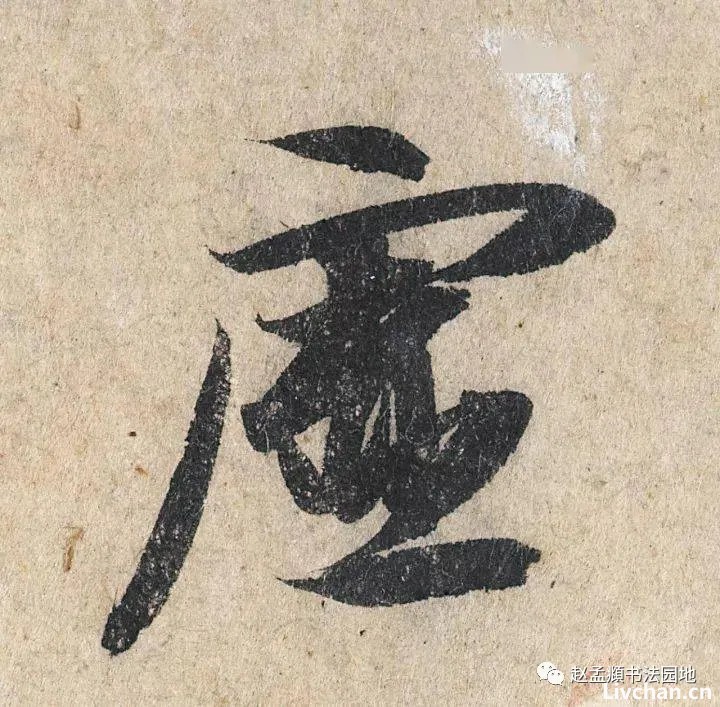 虚
赵孟頫书法园地
Livchan.cn